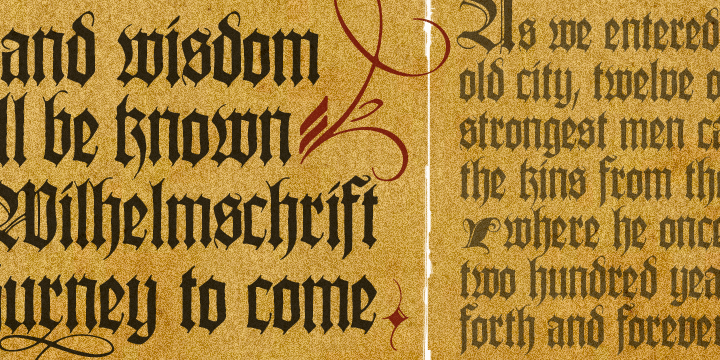 and wisdom
ll be known
Wilhelmschrift
urney to come
As we entered
old city, twelve o
strongest men ca
the kins from th
where he once
two hundred yea
forth and forever